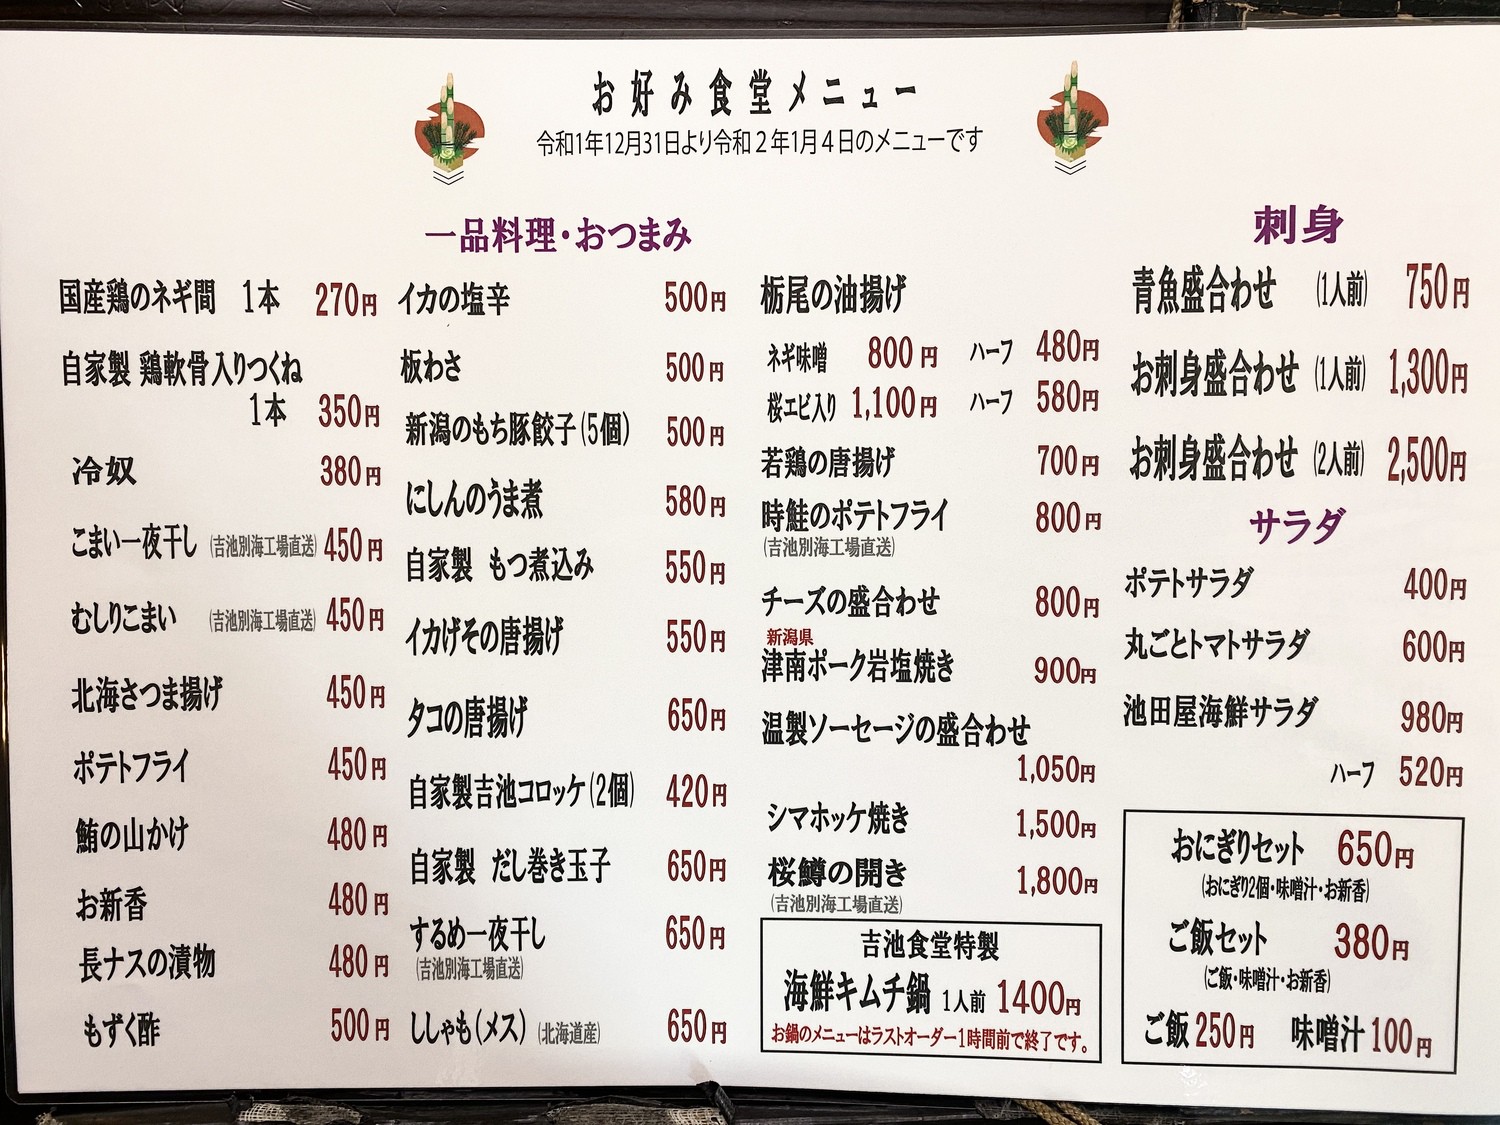 お好み食堂メニュー
令和1年12月31日より令和2年1月4日のメニューです
一品料理・おつまみ
国産鶏のネギ間 1本 270円
自家製 鶏軟骨入りつくね
1本 350円
冷奴 380円
こまい一夜干し (吉池別海工場直送) 450円
むしりこまい (吉池別海工場直送) 450円
北海さつま揚げ 450円
ポテトフライ 450円
鮪の山かけ 480円
お新香 480円
長ナスの漬物 480円
もずく酢 500円
イカの塩辛 500円
板わさ 500円
新潟のもち豚餃子(5個) 500円
にしんのうま煮 580円
自家製 もつ煮込み 550円
イカげその唐揚げ 550円
タコの唐揚げ 650円
自家製吉池コロッケ(2個) 420円
自家製 だし巻き玉子 650円
するめ一夜干し 650円
(吉池別海工場直送)
ししゃも(メス) (北海道産) 650円
栃尾の油揚げ
ネギ味噌 800円 ハーフ 480円
桜エビ入り 1,100円 ハーフ 580円
若鶏の唐揚げ 700円
時鮭のポテトフライ 800円
(吉池別海工場直送)
チーズの盛合わせ 800円
新潟県
津南ポーク岩塩焼き 900円
温製ソーセージの盛合わせ
1,050円
シマホッケ焼き 1,500円
桜鱒の開き 1,800円
(吉池別海工場直送)
吉池食堂特製
海鮮キムチ鍋 1人前 1400円
お鍋のメニューはラストオーダー1時間前で終了です。
刺身
青魚盛合わせ (1人前) 750円
お刺身盛合わせ (1人前) 1,300円
お刺身盛合わせ (2人前) 2,500円
サラダ
ポテトサラダ 400円
丸ごとトマトサラダ 600円
池田屋海鮮サラダ 980円
ハーフ 520円
おにぎりセット 650円
(おにぎり2個・味噌汁・お新香)
ご飯セット 380円
(ご飯・味噌汁・お新香)
ご飯 250円 味噌汁 100円